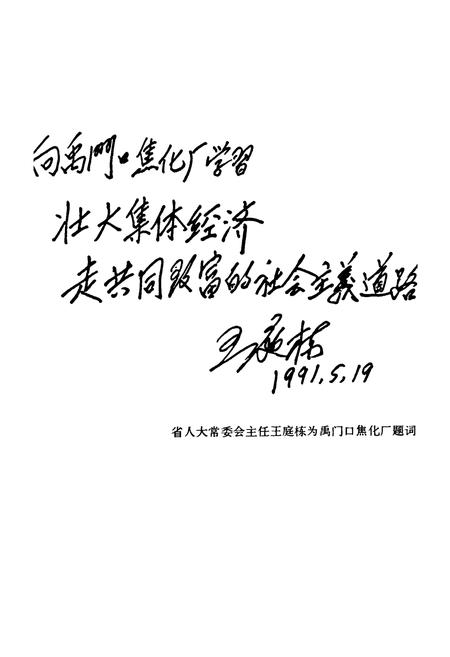 向禹門口焦化厂学習
壮大集体经济
走共同致富的社会主義道路
王庭栋
1991.5.19
省人大常委会主任王庭栋为禹门口焦化厂题词